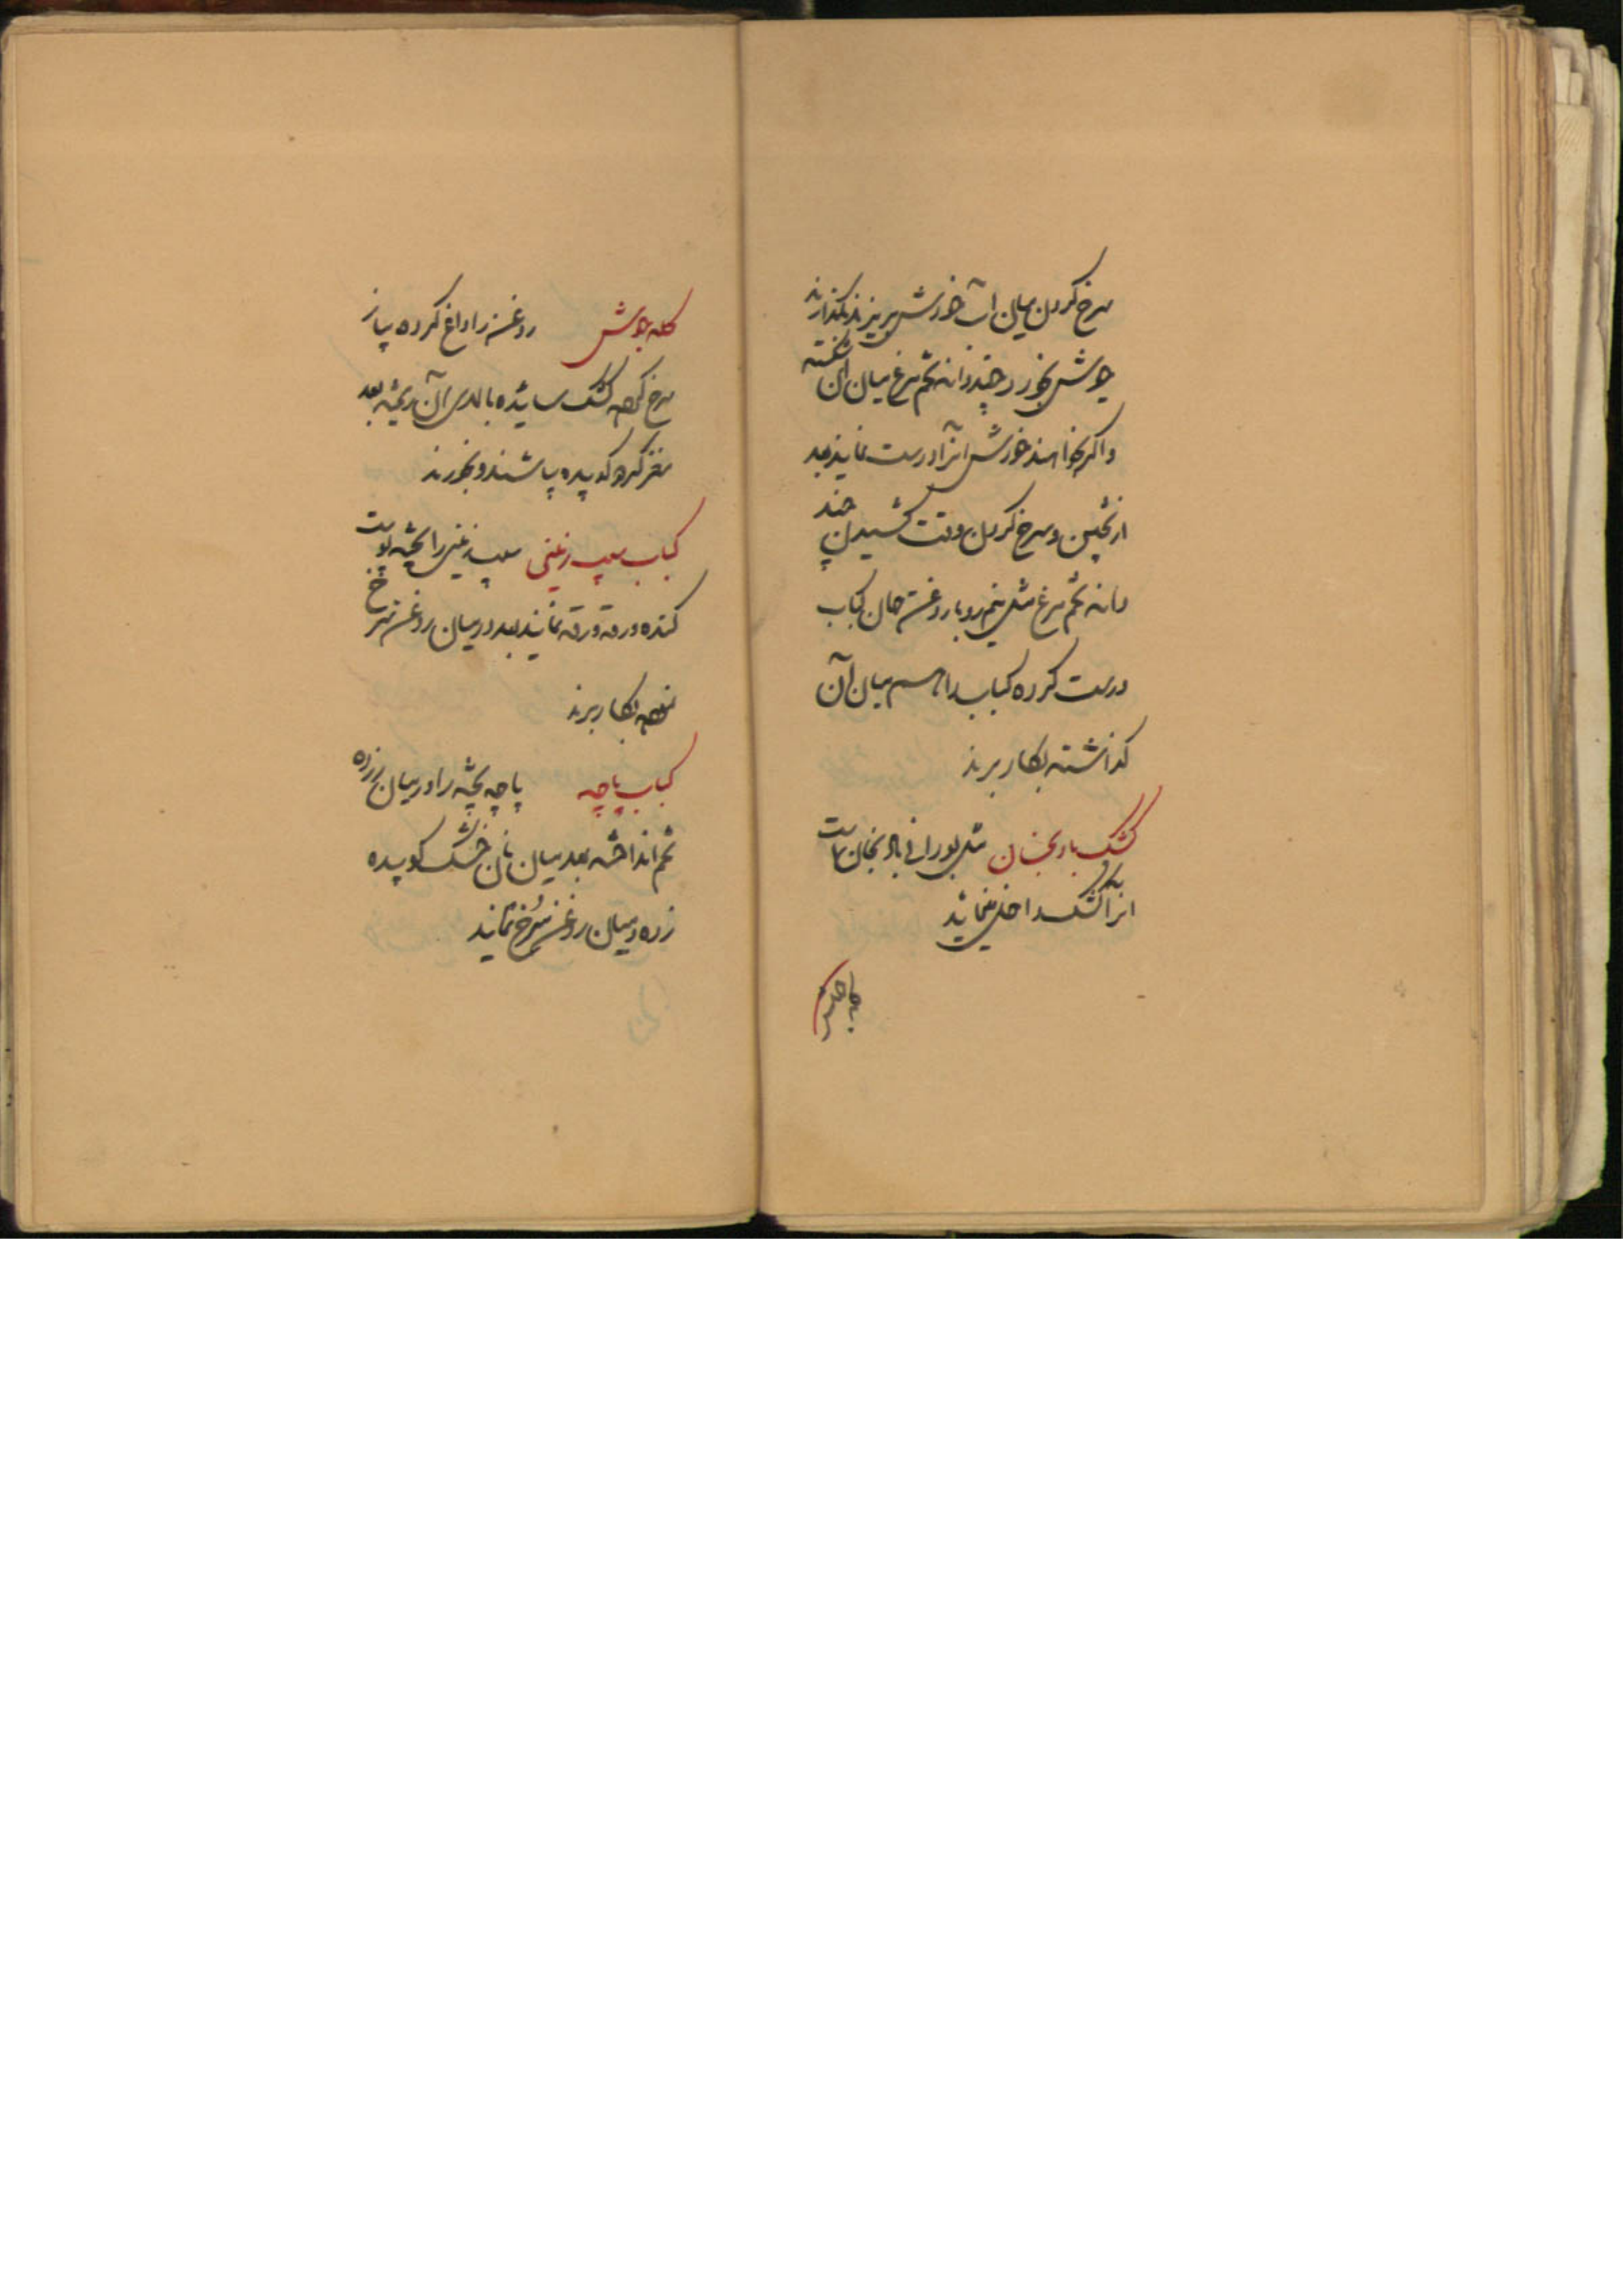 سرخ کردن میان آب خورش بریزند نگذارند
جوش بخورد چند دانه تخم مرغ میان آن شکسته
و اگر بخواهند خورش آنرا درست نمایند بعد
از پختن و سرخ کردن وقت کشیدن چند
دانه تخم مرغ مثل نیمرو با روغن همان کباب
درست کرده کباب را هم میان آن
گذاشته بکار برند
کشک بادنجان مثل بورانی بادنجان است
اینرا کشک داخل مینمایند
کله جوش روغن را داغ کرده پیاز
سرخ کرده کشک سائیده بالای آن ریخته بعد
مغز گردو کوبیده پاشند و بخورند
کباب سیب زمینی سیب زمینی را پخته پوست
کنده ورقه ورقه نمایند بعد در میان روغن سرخ
نموده بکار برند
کباب پاچه پاچه پخته را در میان زرده
تخم انداخته بعد میان نان خشک کوبیده
زده و میان روغن سرخ نمایند